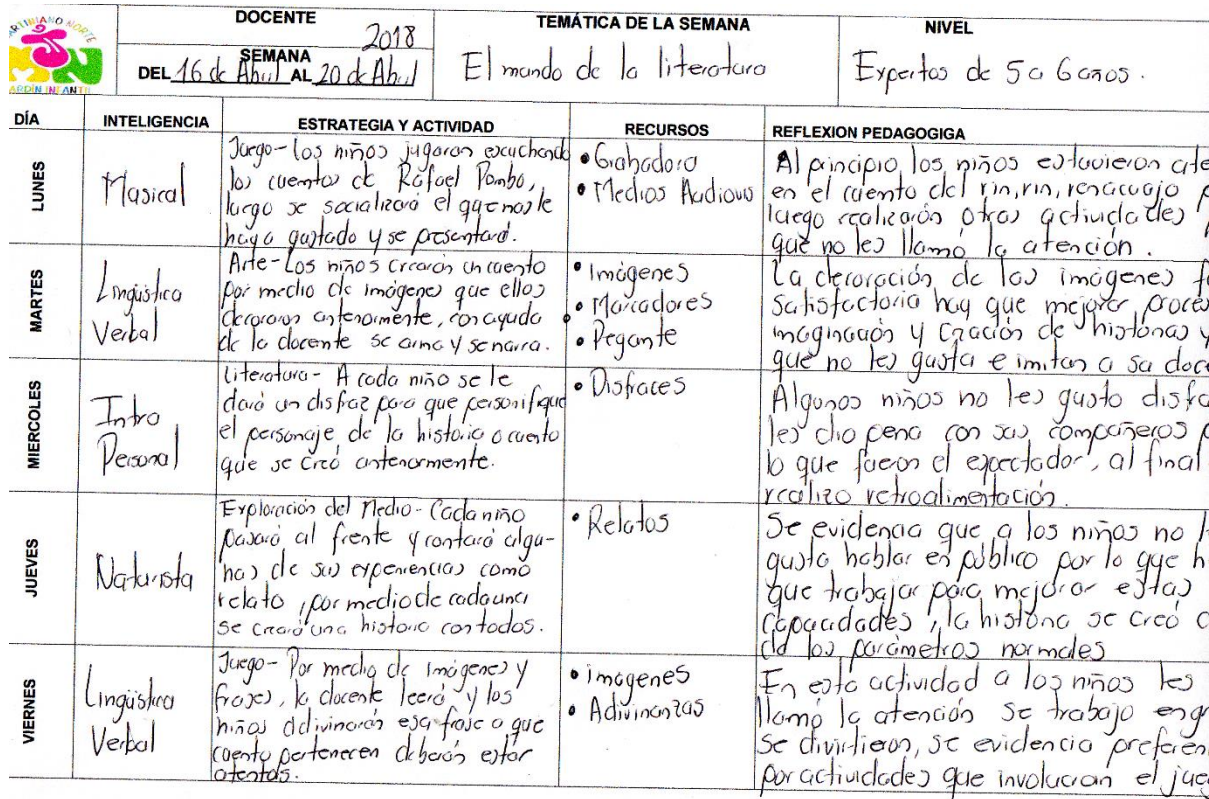 MARTINIANO NORTE
JARDÍN INFANTIL
DOCENTE
2018
SEMANA
DEL 16 de Abril AL 20 de Abril
TEMÁTICA DE LA SEMANA
El mundo de la literatura
NIVEL
Expertos de 5 a 6 años.
DÍA
INTELIGENCIA
ESTRATEGIA Y ACTIVIDAD
RECURSOS
REFLEXION PEDAGOGIGA
LUNES
Musical
Juego- los niños jugaran escuchando
los cuentos de Rafael Pombo,
luego se socializará el que más le
haya gustado y se presentará.
• Grabadora
• Medios Audiovis
Al principio los niños estuvieron ate
en el cuento del rin, rin, renacuajo p
luego realizarón otras actividades
que no les llamó la atención.
MARTES
Lingüística
Verbal
Arte- Los niños crearán un cuento
por medio de imágenes que ellos
decoraron anteriormente, con ayuda
de la docente se arma y se narra.
• Imágenes
• Marcadores
• Pegante
La decoración de las imágenes f
satisfactoria hay que mejorar proces
imaginación y creación de historias y
que no les gusta e imitan a su doce
MIERCOLES
Intra
Personal
Literatura- A cada niño se le
dará un disfraz para que personifique
el personaje de la historia o cuento
que se creó anteriormente.
• Disfraces
Algunos niños no les gusto disfra
les dio pena con sus compañeros p
lo que fueron el espectador, al final
realizo retroalimentación.
JUEVES
Naturista
Exploración del Medio- Cada niño
pasará al frente y contará algu-
nas de sus experiencias como
relato, por medio de cada una
se creará una historia con todos.
• Relatos
Se evidencia que a los niños no l
gusta hablar en público por lo que h
que trabajar para mejorar estas
capacidades, la historia se creó
de los parámetros normales
VIERNES
Lingüística
Verbal
Juego- Por medio de imágenes y
frases, la docente leerá y los
niños adivinarán esa frase a que
cuento pertenecen deberán estar
atentos.
• imágenes
• Adivinanzas
En esta actividad a los niños les
llamó la atención se trabajo en gr
se divirtieron, se evidencia preferen
por actividades que involucran el jueg